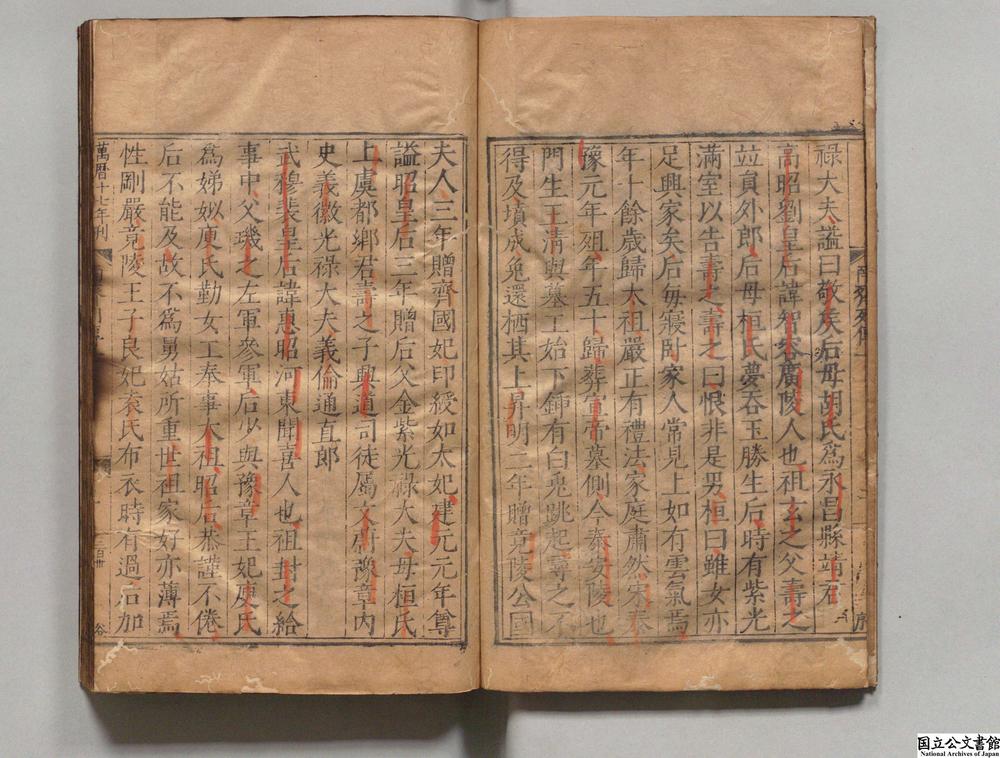 祿大夫謚曰敬侯后母胡氏為永昌縣靖君
高昭劉皇后諱智容廣陵人也祖玄之父壽之
竝員外郎后母桓氏夢吞玉勝生后時有紫光
滿室以告壽之壽之曰恨非是男桓曰雖女亦
足興家矣后每寢卧家人常見上如有雲氣焉
年十餘歲歸太祖嚴正有禮法家庭肅然宋泰
豫元年殂年五十歸葬宣帝墓側今泰安陵也
門生王清與墓工始下鍤有白兎跳起尋之不
得及墳成兎還栖其上昇明二年贈竟陵公國
夫人三年贈齊國妃印綬如太妃建元元年尊
謚昭皇后三年贈后父金紫光祿大夫母桓氏
上虞都鄉君壽之子興道司徒屬文蔚豫章內
史義徽光祿大夫義倫通直郎
武穆裴皇后諱惠昭河東聞喜人也祖封之給
事中父璣之左軍參軍后少與豫章王妃庾氏
為娣姒庾氏勤女工奉事太祖昭后恭謹不倦
后不能及故不為舅姑所重世祖家好亦薄焉
性剛嚴竟陵王子良妃袁氏布衣時有過后加
萬曆十七年刊
国立公文書館
National Archives of Japan